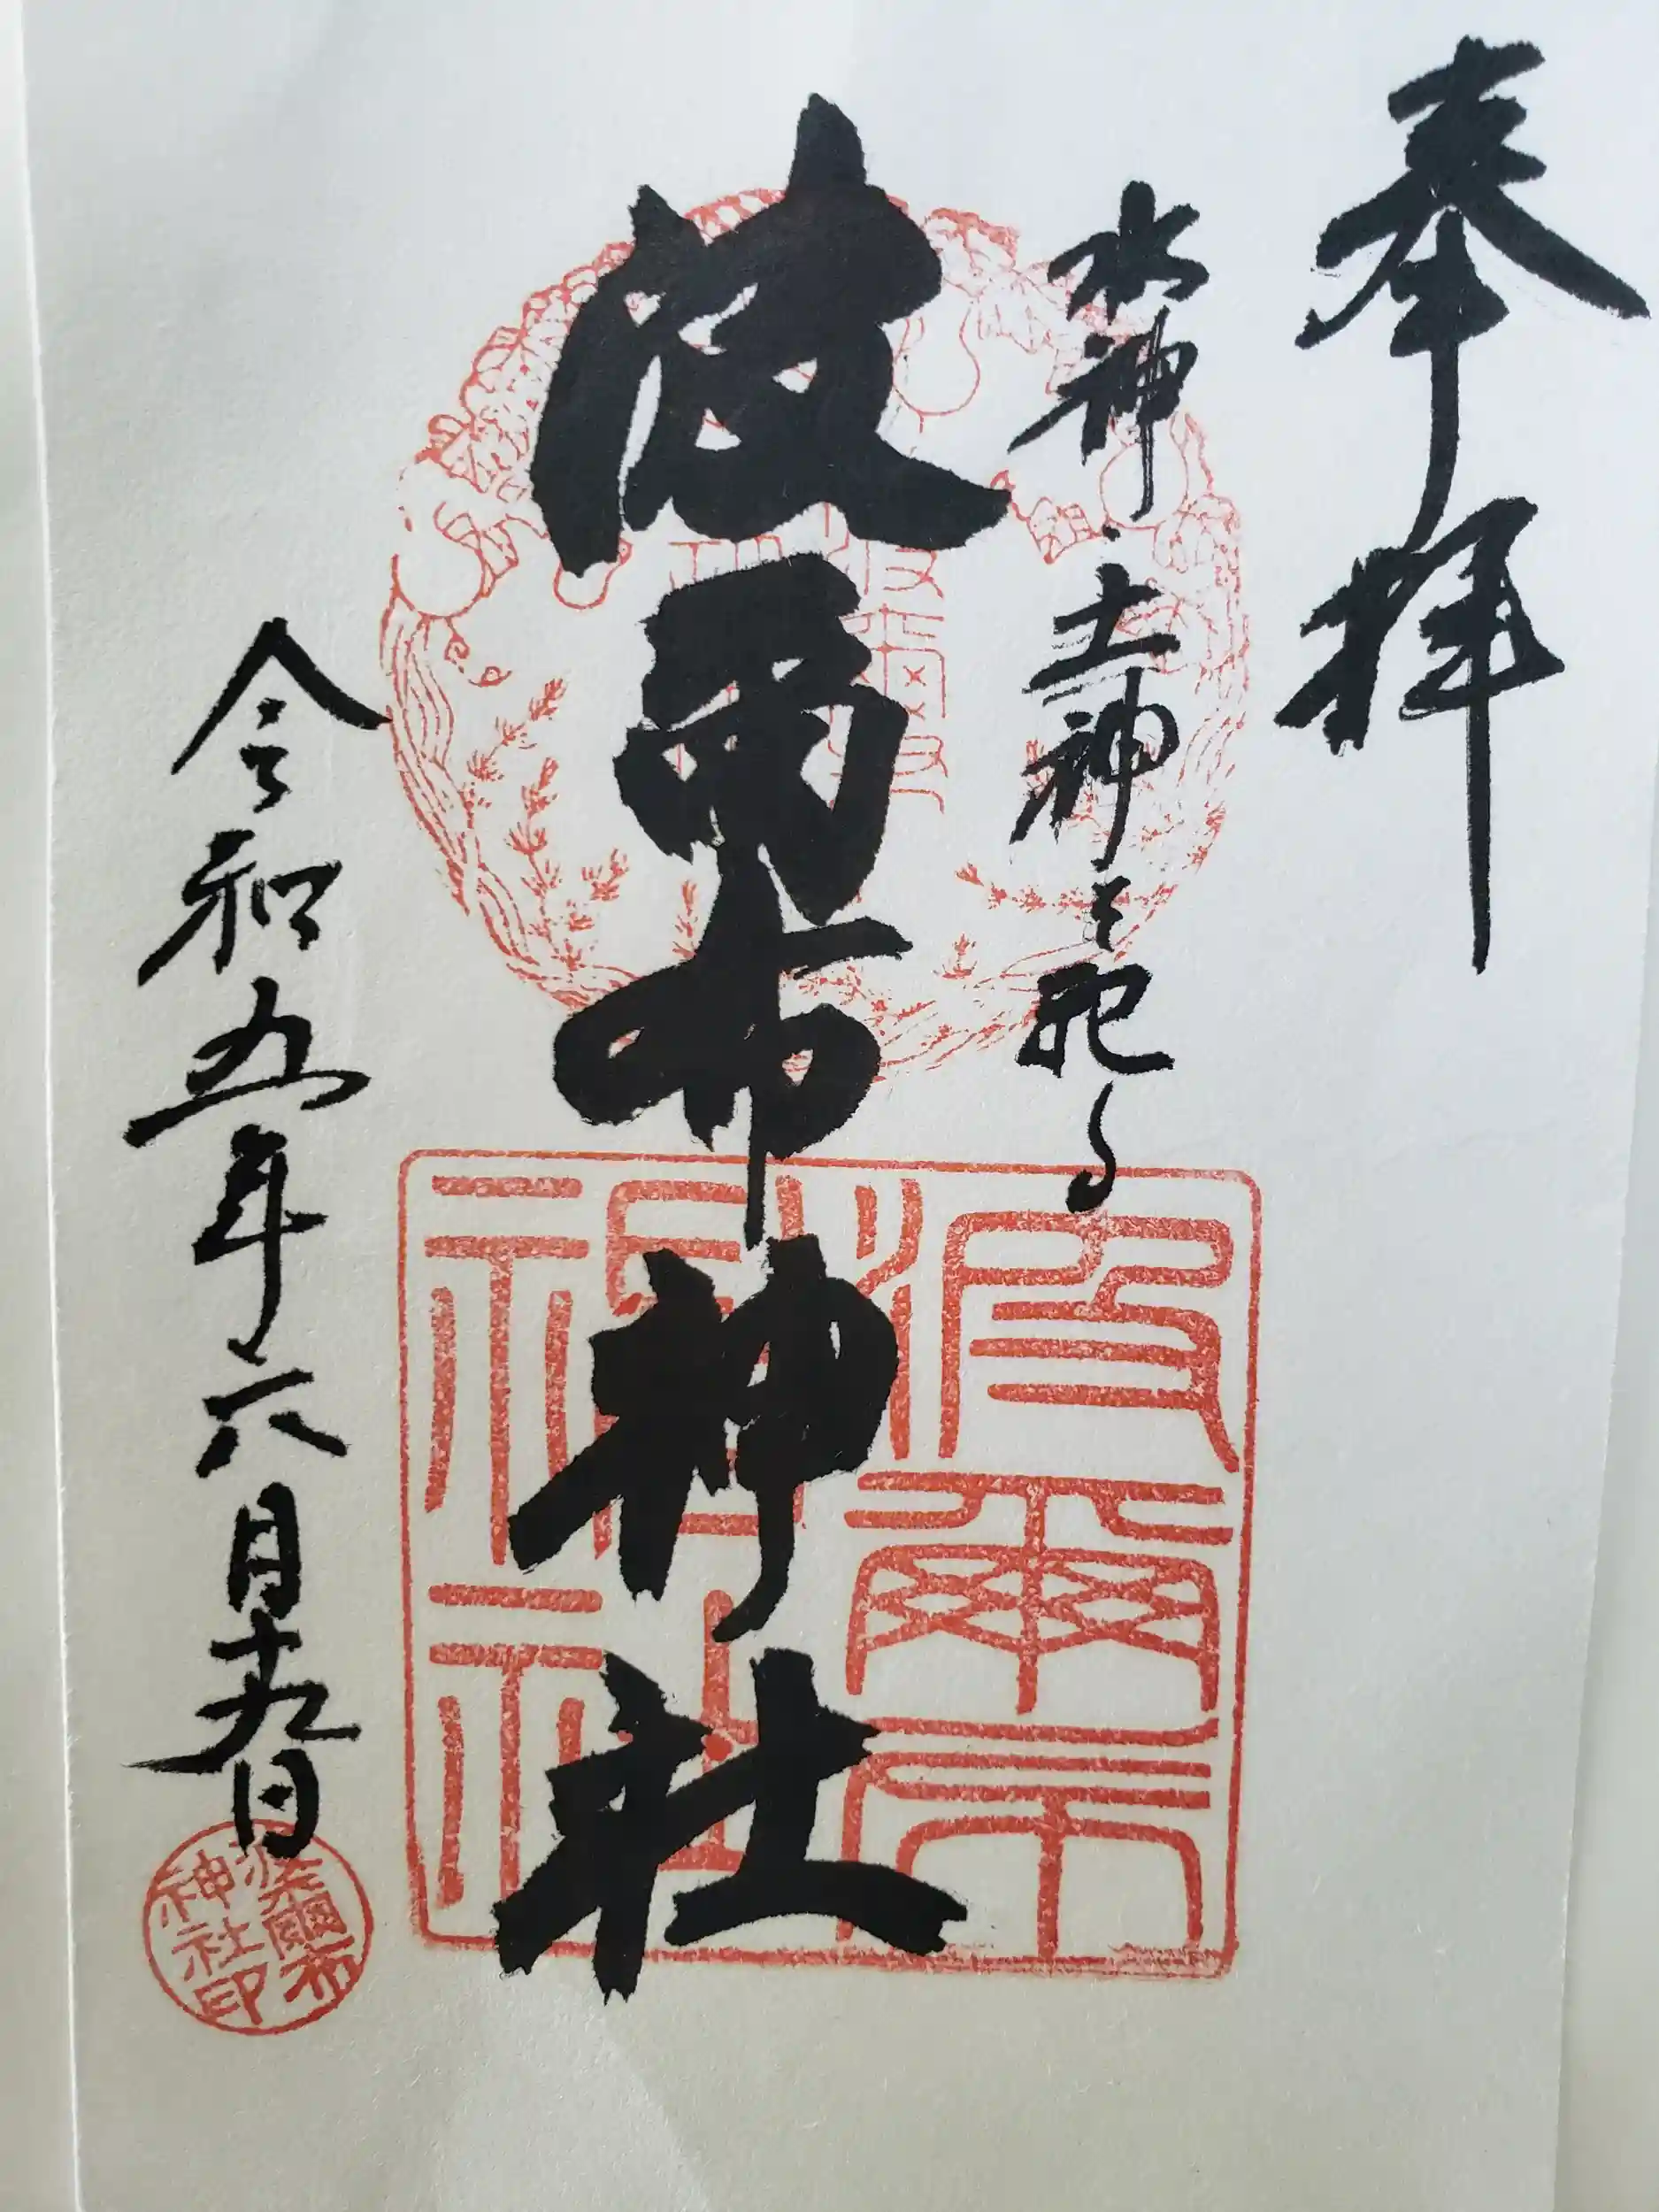 奉拝
水神・土神を祀る
波爾布神社
令和五年六月十九日
波爾布
神社
波爾布
神社印